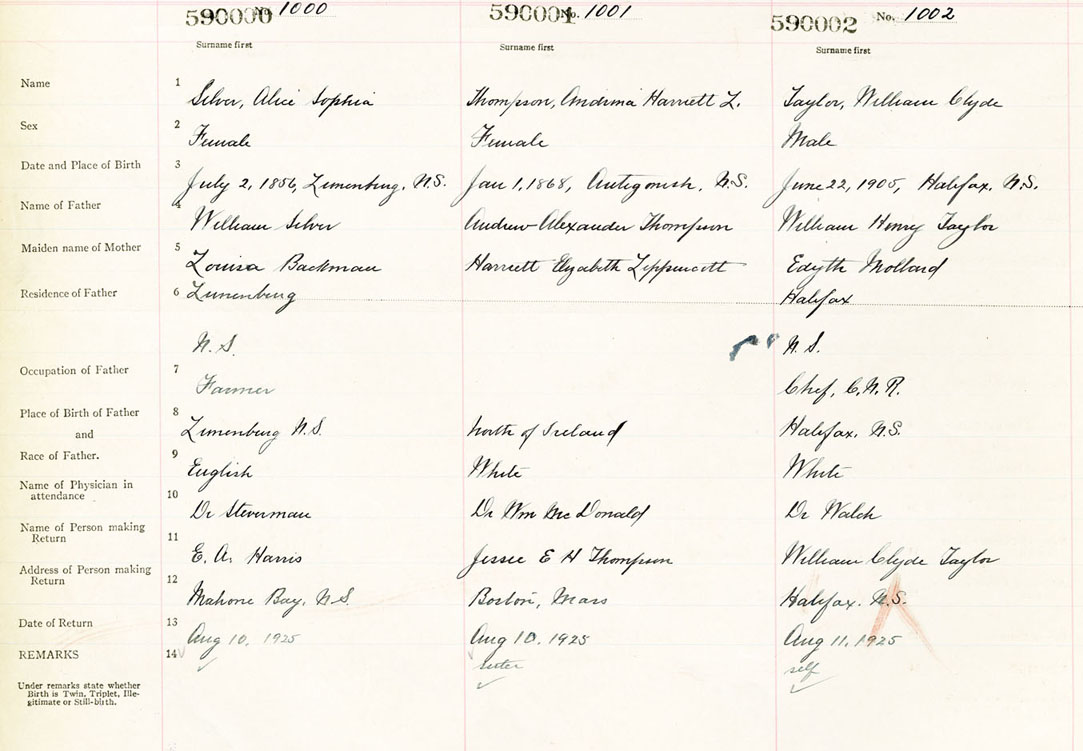 590000 No. 1000 590001 No. 1001 590002 No. 1002
Surname first Surname first Surname first
Name 1 Silver, Alice Sophia Thompson, Andrina Harriett L. Taylor, William Clyde
Sex 2 Female Female Male
Date and Place of Birth 3 July 2, 1856, Lunenburg, N.S. Jan 1, 1868, Antigonish, N.S. June 22, 1905, Halifax, N.S.
Name of Father 4 William Silver Andrew Alexander Thompson William Henry Taylor
Maiden name of Mother 5 Louisa Backman Harriett Elizabeth Lippincott Edyth Mollard
Residence of Father 6 Lunenburg Halifax
N.S. N.S.
Occupation of Father 7 Farmer Chef, C.N.R.
Place of Birth of Father 8 Lunenburg N.S. North of Ireland Halifax, N.S.
and
Race of Father. 9 English White White
Name of Physician in
attendance 10 Dr Steverman Dr Wm McDonald Dr Walch
Name of Person making
Return 11 E. A. Harris Jessie E H Thompson William Clyde Taylor
Address of Person making
Return 12 Mahone Bay, N.S. Boston, Mass Halifax. N.S.
Date of Return 13 Aug 10, 1925 Aug 10. 1925 Aug 11, 1925
REMARKS 14 sister self
Under remarks state whether
Birth is Twin, Triplet, Ille-
gitimate or Still-birth.